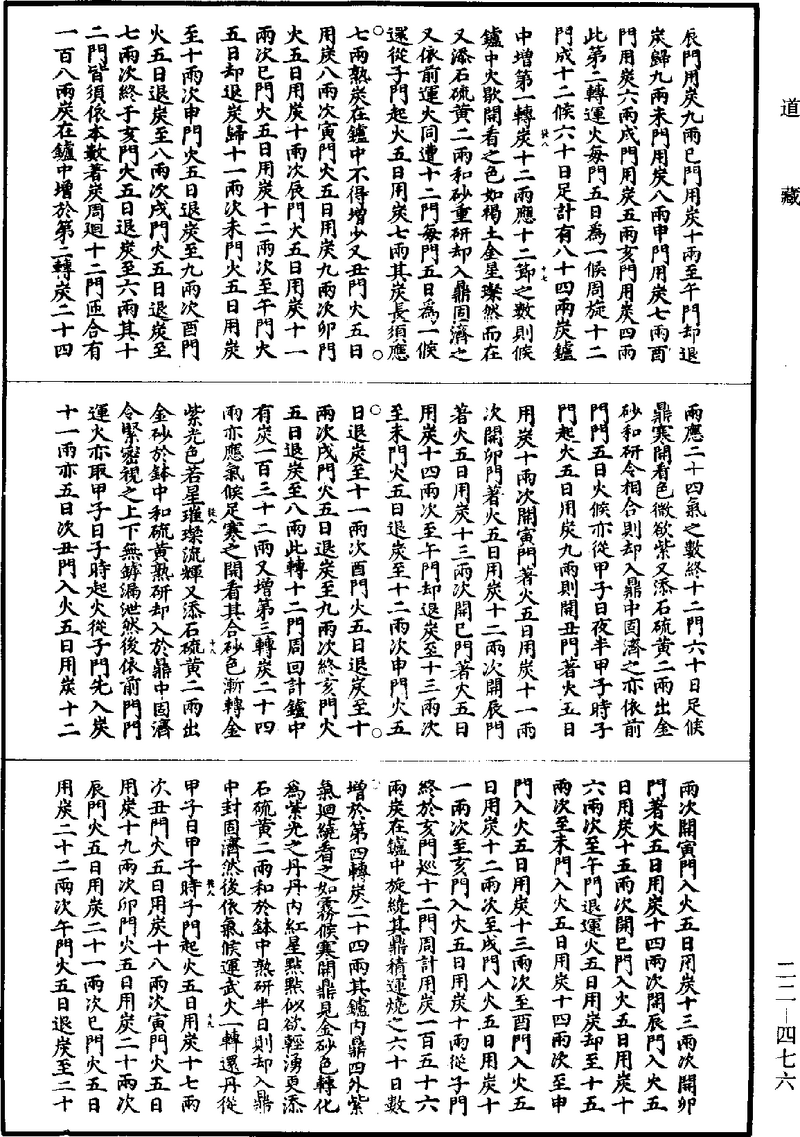 道藏
辰門用炭九兩巳門用炭十兩至午門却退
炭歸九兩未門用炭八兩申門用炭七兩酉
門用炭六兩戌門用炭五兩亥門用炭四兩
此第二轉運火每門五日為一候周旋十二
門成十二候六十日足計有八十四兩炭鑪
中增第一轉炭十二兩應十二節之數則候
鑪中火歇開看之色如褐土金星璨然而在
又添石硫黃二兩和砂重研却入鼎固濟之
又依前運火同遭十二門每門五日爲一候
還從子門起火五日用炭七兩其炭長須應
七兩熟炭在鑪中不得增少又丑門火五日
用炭八兩次寅門火五日用炭九兩次卯門
火五日用炭十兩次辰門火五日用炭十一
兩次巳門火五日用炭十二兩次至午門火
五日却退炭歸十一兩次未門火五日用炭
至十兩次申門火五日退炭至九兩次酉門
火五日退炭至八兩次戌門火五日退炭至
七兩次終于亥門火五日退炭至六兩其十
二門皆須依本數著炭周迴十二門匝合有
一百八兩炭在鑪中增於第二轉炭二十四
兩應二十四氣之數終十二門六十日足候
鼎寒開看色微欲紫又添石硫黃二兩出金
砂和研令相合則却入鼎中固濟之亦依前
門門五日火候亦從甲子日夜半甲子時子
門起火五日用炭九兩則開丑門著火五日
用炭十兩次開寅門著火五日用炭十一兩
次開卯門著火五日用炭十二兩次開辰門
著火五日用炭十三兩次開巳門著火五日
用炭十四兩次至午門却退炭至十三兩次
至未門火五日退炭至十二兩次申門火五
日退炭至十一兩次酉門火五日退炭至十
兩次戌門火五日退炭至九兩次終亥門火
五日退炭至八兩此轉十二門周回計鑪中
有炭一百三十二兩又增第三轉炭二十四
兩亦應氣候足寒之開看其合砂色漸轉金
紫光色若星璀璨流輝又添石硫黃二兩出
金砂於鉢中和硫黃熟研却入於鼎中固濟
令緊密視之上下無罅漏泄然後依前門門
運火亦取甲子日子時起火從子門先入炭
十一兩亦五日次丑門入火五日用炭十二
兩次開寅門入火五日用炭十三兩次開卯
門著火五日用炭十四兩次開辰門入火五
日用炭十五兩次開巳門入火五日用炭十
六兩次至午門退運火五日用炭却至十五
兩次至未門入火五日用炭十四兩次至申
門入火五日用炭十三兩次至酉門入火五
日用炭十二兩次至戌門入火五日用炭十
一兩次至亥門入火五日用炭十兩從子門
終於亥門巡十二門周計用炭一百五十六
兩炭在鑪中旋繞其鼎積運燒之六十日數
增於第四轉炭二十四兩其鑪内鼎四外紫
氣迴繞看之如霧候寒開鼎見金砂色轉化
為紫光之丹丹內紅星點點似欲輕湧更添
石硫黃二兩和於鉢中熟研半日則却入鼎
中封固濟然後依氣候運武火一轉還丹從
甲子日甲子時子門起火五日用炭十七兩
次丑門火五日用炭十八兩次寅門火五日
用炭十九兩次卯門火五日用炭二十兩次
辰門火五日用炭二十一兩次巳門火五日
用炭二十二兩次午門火五日退炭至二十
二二—四七六